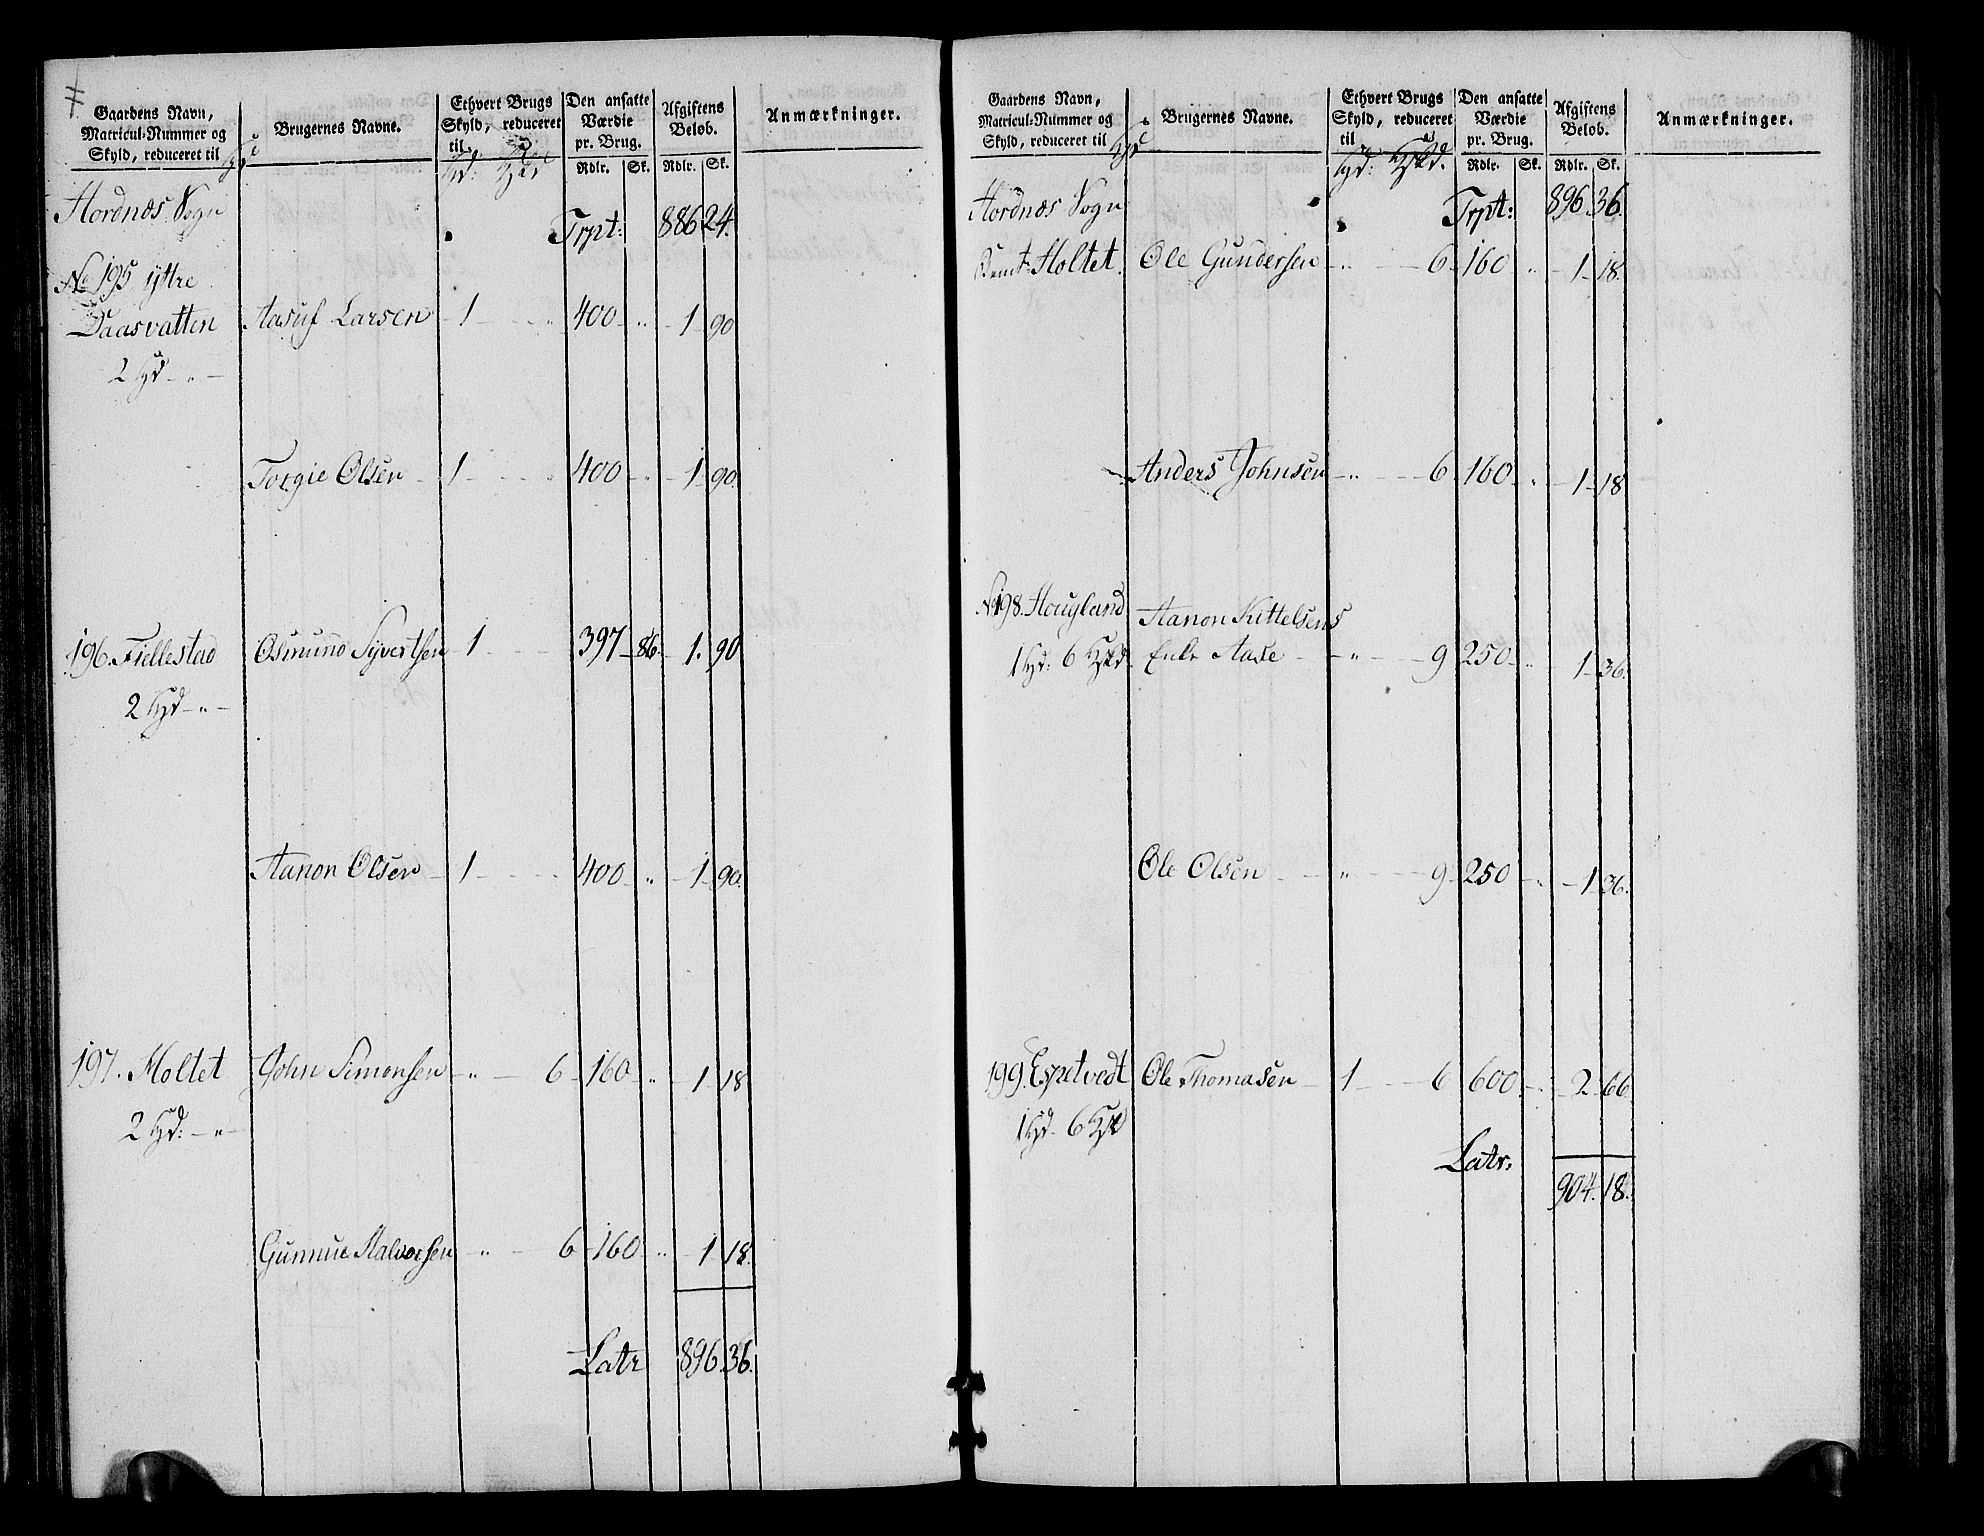 Gaardens Navn,
Matricul-Nummer og
Skyld, reduceret til
Brugernes Navne.
Ethvert Brugs
Skyld, reduceret
til
Den ansatte
Værdie
pr. Brug.
Rdlr. Sk.
Afgiftens
Beløb.
Rdlr. Sk.
Anmærkninger.
Hordnæs Sogn
Trpt: 886 24.
No 195 yttre
Daasvatten Aasuf Larsen 1 - - „ 400 - „ - 1 90
2 Hd - „ -
Torgie Olsen - 1 - - - „ 400 - „ - 1 - 90.
196. Fiellestad Osmund Syvertsen 1 - - 397 - 86. - 1. 90
2 Hd - „ -
Aanon Olsen - 1 - - - 400 - „ - 1 - 90.
197. Holtet John Simonsen - „ - 6 - 160 - „ - 1 - 18
2 Hd: - „ -
Gunnue Halvorsen - „ - 6 - 160 - „ - 1 18.
Latr 896. 36.
Gaardens Navn,
Matricul-Nummer og
Skyld, reduceret til
Brugernes Navne.
Ethvert Brugs
Skyld, reduceret
til
Den ansatte
Værdie
pr. Brug.
Rdlr. Sk.
Afgiftens
Beløb.
Rdlr. Sk.
Anmærkninger.
Hordnæs Sogn Trpt: 896. 36.
Holtet. Ole Gundersen - „ - 6 - 160 „ - 1 - 18.
Anders Johnsen - „ - - 6 - 160 - „ - 1 - 18
No 198. Hougland Aanon Kittelsens
1 Hd: 6 Hkd. Enke Aase - - „ - - 9 250 - „ 1 - 36.
Ole Olsen - - „ - - 9 - 250 - „ - 1 36.
199. Espetvedt Ole Thomasen - 1 - - 6 600 - „ - 2 - 66.
1 Hd - 6 Hkd
Latr:
904. 18.